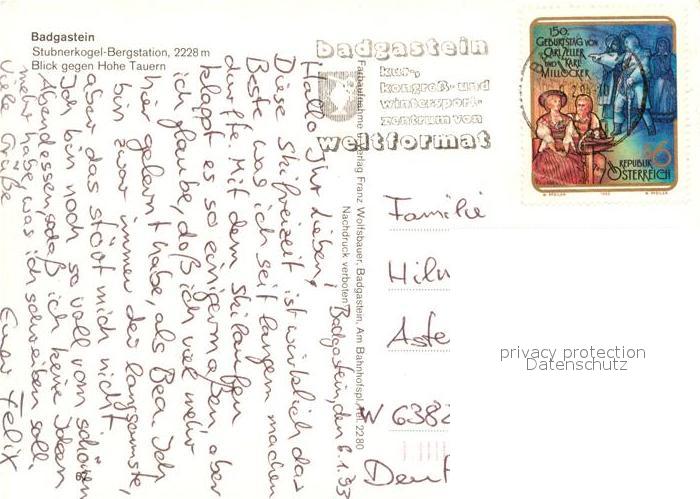 Badgastein
Stubnerkogel-Bergstation, 2228 m
Blick gegen Hohe Tauern
badgastein
kur-,
kongreß- und
wintersport-
zentrum von
weltformat
150.
GEBURTSTAG VON
CARL ZELLER
UND KARL
MILLÖCKER
S6
REPUBLIK
ÖSTERREICH
Farbaufnahme Verlag Franz Wolfsbauer, Badgastein, Am Bahnhofspl. Tel. 2280
Nachdruck verboten
Badgastein, den 6.1.93
Hallo Ihr Lieben!
Diese Skifreizeit ist wirklich das
Beste was ich seit langem machen
durfte. Mit dem Skilaufen
klappt es so einigermaßen, aber
ich glaube, daß ich viel mehr
hier gelernt habe, als Bea. Ich
bin zwar immer der langsamste,
aber das stört mich nicht.
Ich bin noch so voll vom schönen
Abendessen, daß ich keine Ideen
mehr habe was ich schreiben soll.
Viele Grüße
Euer Felix
Familie
Hilm
Aste
W 6382
Deut
privacy protection
Datenschutz